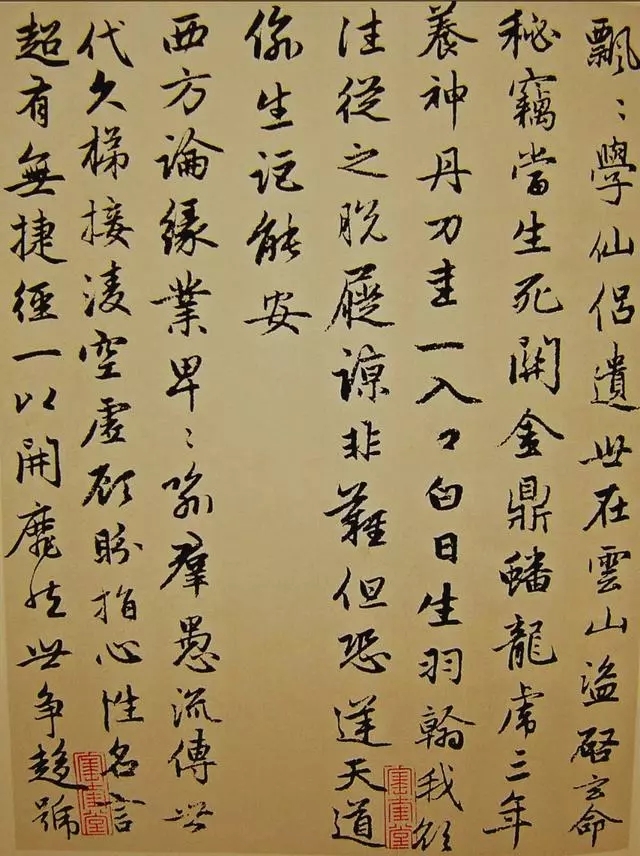 飄〻學仙侶遺世在雲山盜啓玄命
秘竊當生死關金鼎蟠龍虎三年
養神丹刀圭一入口白日生羽翰我欲
往從之脫屣諒非難但恐逆天道
偷生詎能安
西方論緣業卑〻喻羣愚流傳世
代久梯接凌空虛顧盼指心性名言
超有無捷徑一以開靡然世爭趨號